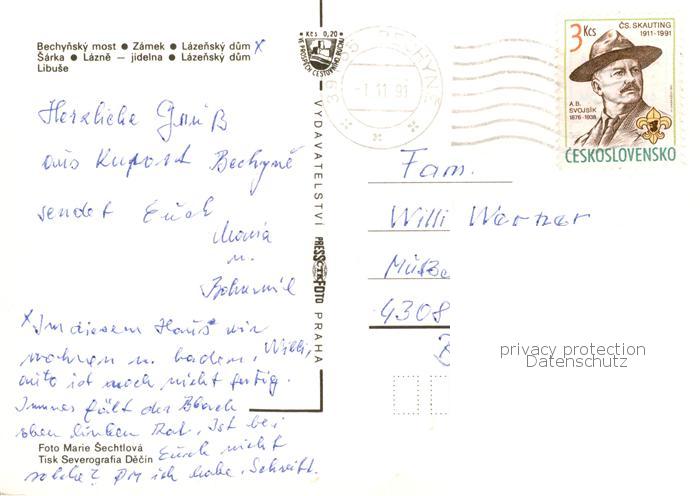 Bechyňský most ● Zámek ● Lázeňský dům x
Šárka ● Lázně — jidelna ● Lázeňský dům
Libuše
Kčs 0,20
VE PROSPĚCH CESTOVNÍHO RUCHU
BECHYNĚ
-1.11.91
ČS. SKAUTING
1911-1991
3 Kčs
A.B.
SVOJSÍK
1876-1938
ČESKOSLOVENSKO
Herzliche Gruß
aus Kurort Bechyně
sendet Euch
Maria
u.
Bohumil
x Im diesem Haus wir
wohnen u. baden. Willi,
auto ist noch nicht fertig.
Immer fält der
oben linken Rat. Ist bei
Euch nicht
solche? ich habe. Schreibt.
VYDAVATELSTVÍ PRESSFOTO PRAHA
Foto Marie Šechtlová
Tisk Severografia Děčín
Fam.
Willi Werner
4308
privacy protection
Datenschutz